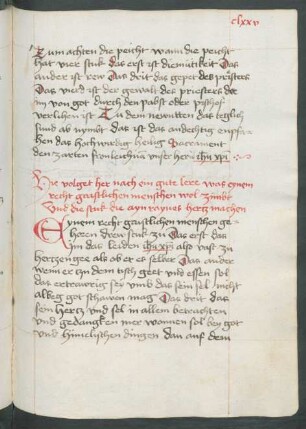 clxxv
Zum achten die peicht wann die peicht
hat vier stuk das erst ist diemütikeit Das
ander ist rew Das drit das gepet des pristers
Das vierd ist der gewalt des priesters der
im von got durch den pabst oder pisschof
verlihen ist Zu dem newnten das teglich
sünd ab nymbt das ist das andechtig enpfa
hen das hochwirdig heilig Sacrament
den zarten fronleichnam unser herrn ihu xpi
Hie volget her nach ein gute lere was einem
recht gaistlichen menschen wol zimbt
Und die stuk die ain raynes hercz machen
Eynem recht gaistlichen menschen ge
hören drew stuk zu Das erst das
im das leiden ihu xpi also vast zu
herczen gee als ob er es selber Das ander
wenn er zu dem tisch geet und essen sol
das er traurig sey umb das sein sel nicht
albeg got schawen mag Das drit das
sein hercz und sel in allem betrachten
und gedancken mer wonnen sol bey got
und himelischen dingen dan auf dem